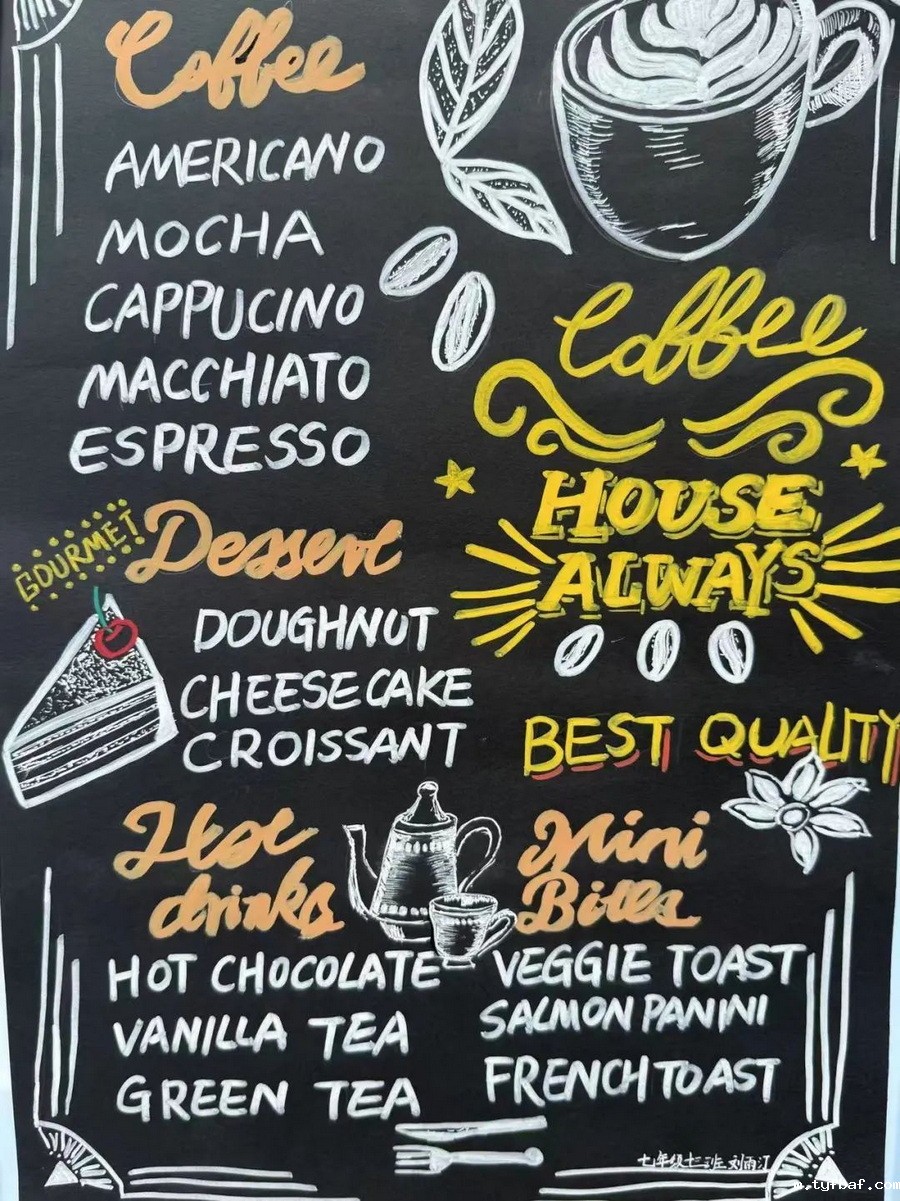 Coffee
AMERICANO
MOCHA
CAPPUCINO
MACCHIATO
ESPRESSO
Coffee
HOUSE
ALWAYS
GOURMET
Dessert
DOUGHNUT
CHEESECAKE
CROISSANT
BEST QUALITY
Hot
drinks
HOT CHOCOLATE
VANILLA TEA
GREEN TEA
Mini
Bites
VEGGIE TOAST
SALMON PANINI
FRENCH TOAST
七年级十三班刘雨汀
m.tyfbaf.com